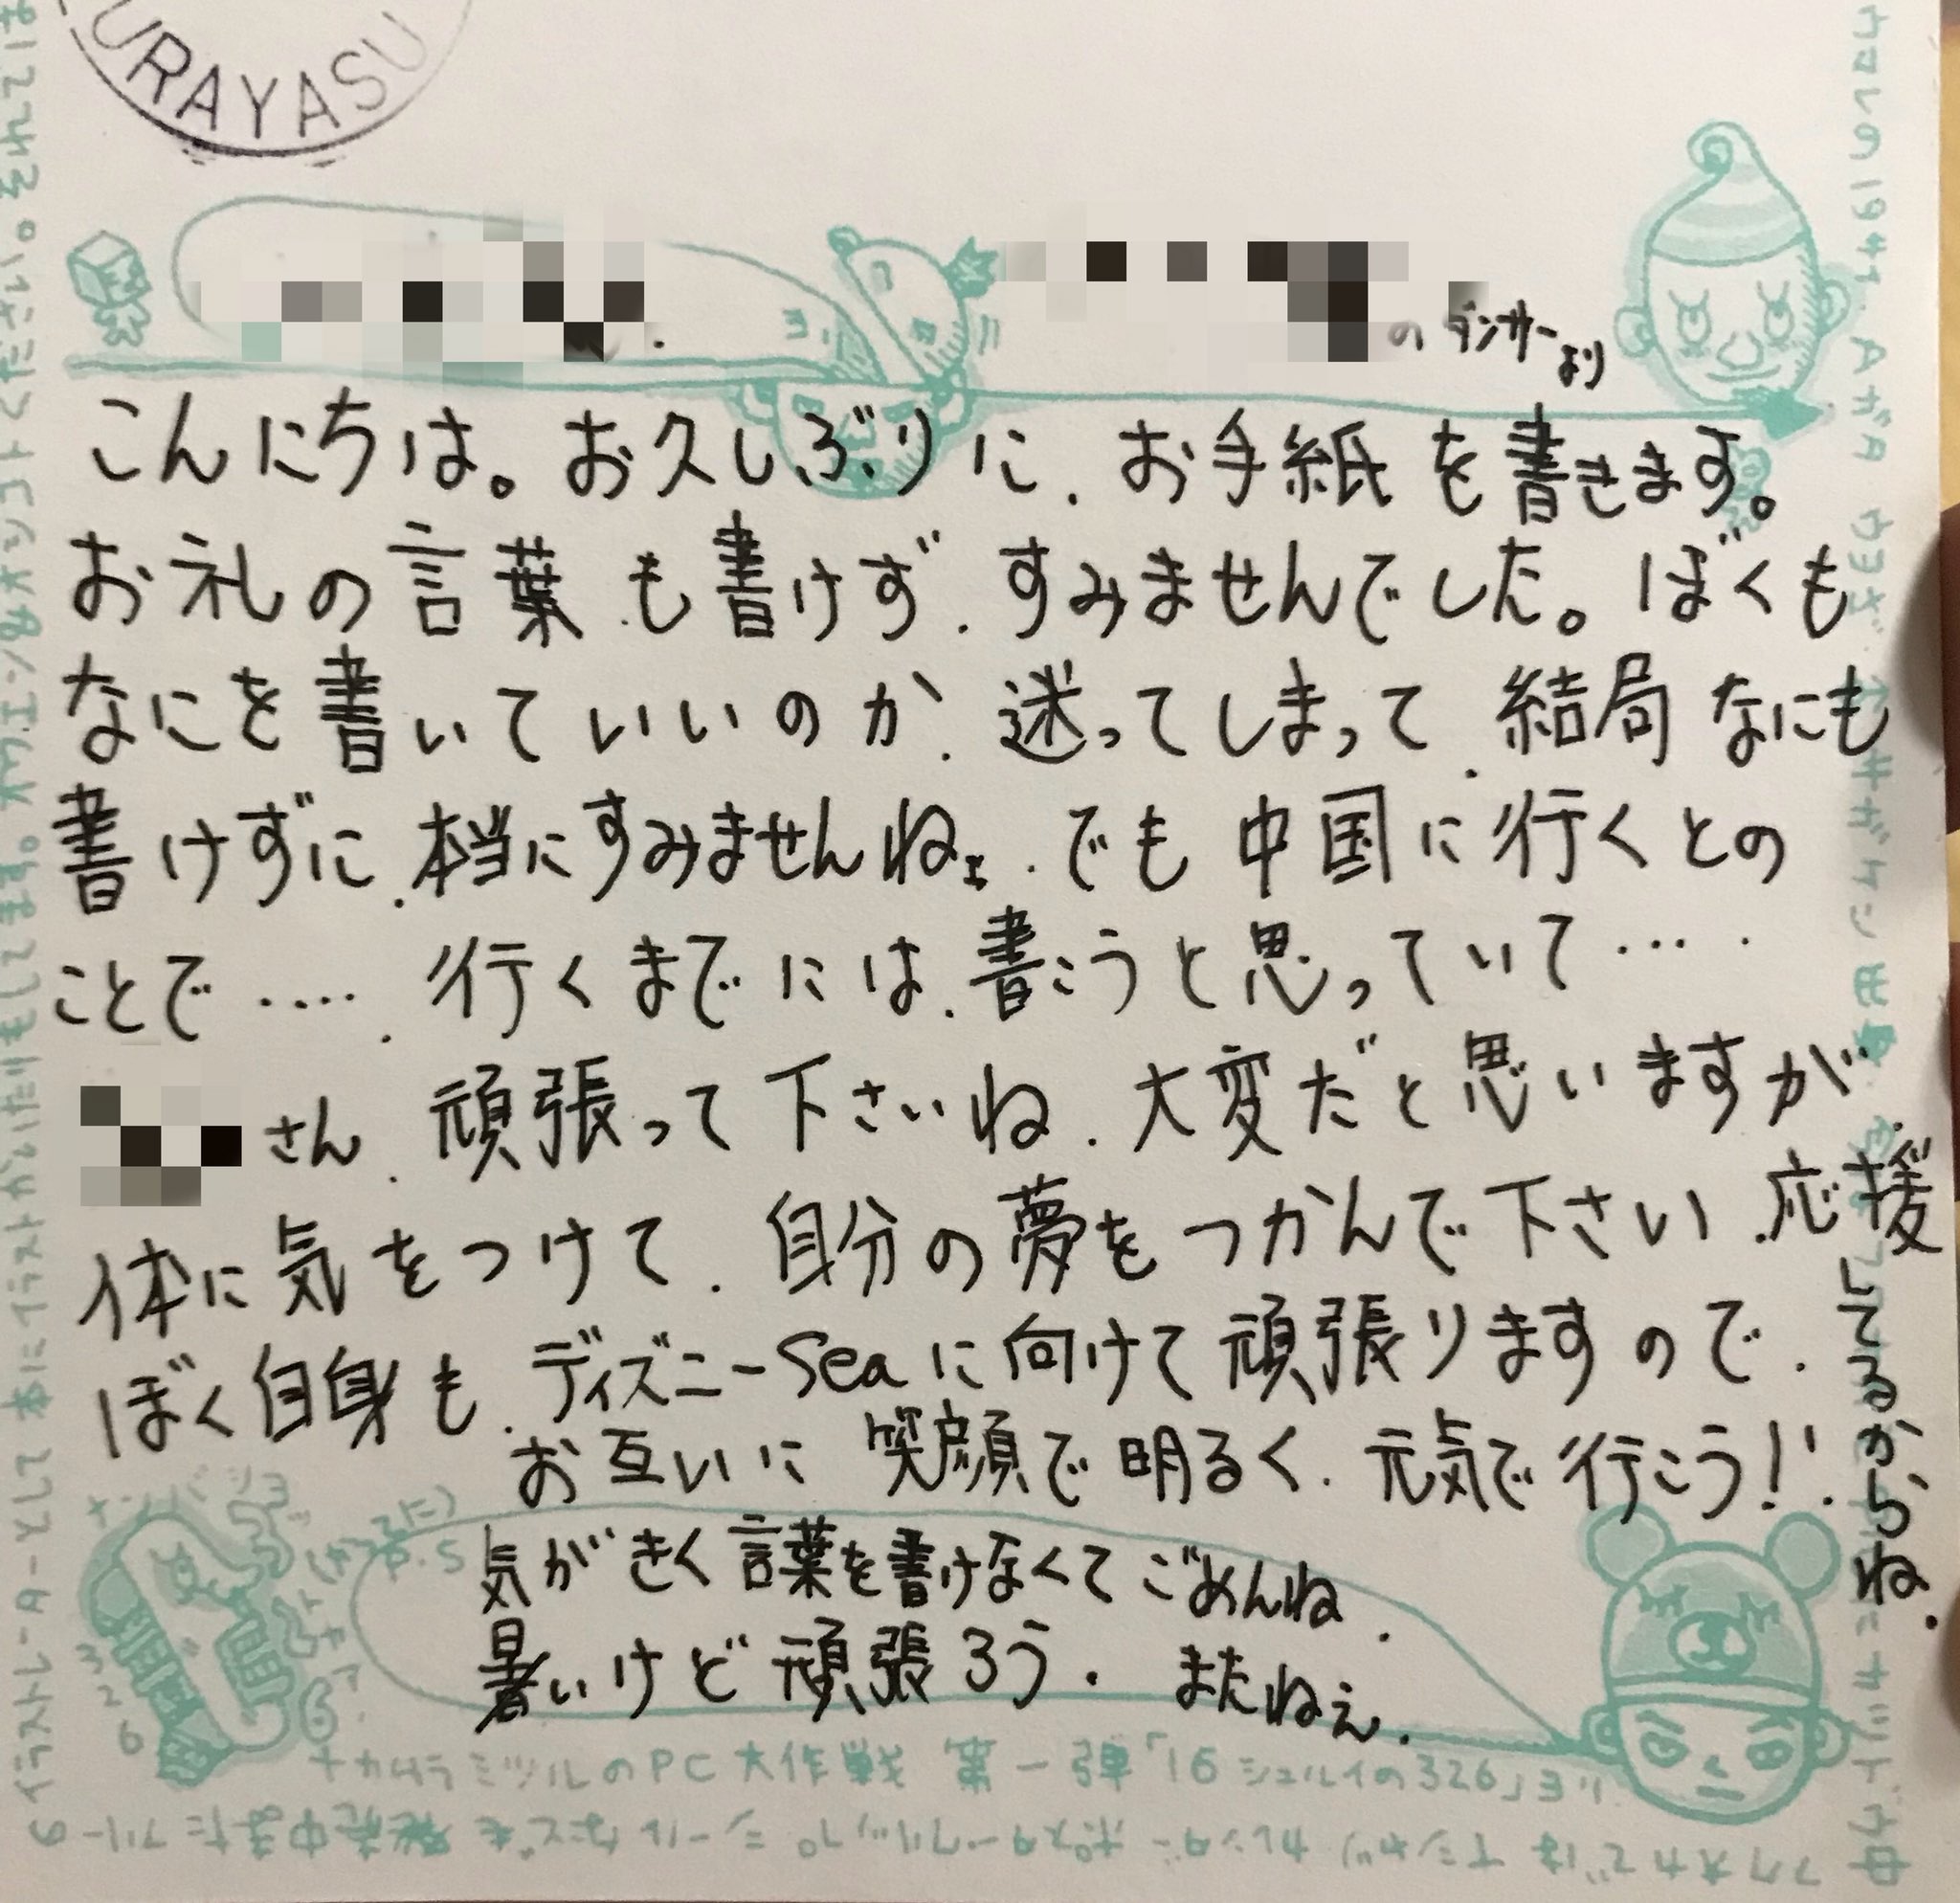 URAYASU
のダンサーより
こんにちは。お久しぶりに、お手紙を書きます。
お礼の言葉も書けず、すみませんでした。ぼくも
なにを書いていいのか、迷ってしまって、結局なにも
書けずに、本当にすみませんねェ、でも中国に行くとの
ことで‥‥、行くまでには、書こうと思っていて‥‥
さん、頑張って下さいね、大変だと思いますが、
体に気をつけて、自分の夢をつかんで下さい、応援
してるからね、
ぼく自身も、ディズニーSeaに向けて頑張りますので、
お互いに笑顔で明るく、元気で行こう!!
気がきく言葉を書けなくてごめんね、
暑いけど頑張ろう、またねぇ、
ナカムラミツルのPC大作戦 第一弾「16シュルイの326」ヨリ
326